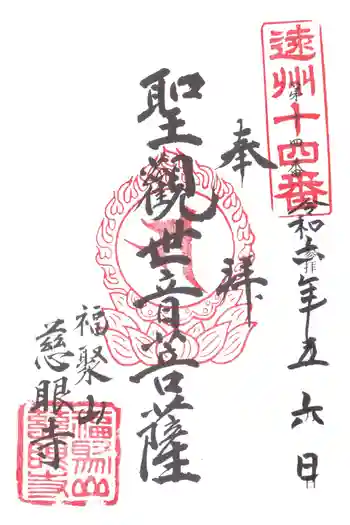 遠州十四番
第十四番
奉拝
令和六年五月六日
聖観世音菩薩
福聚山
慈眼寺